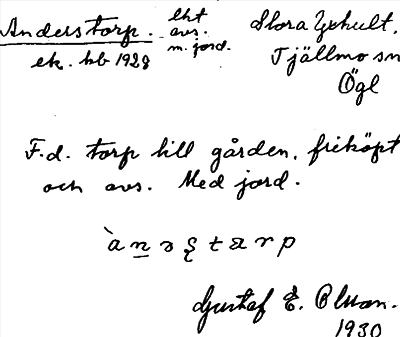 Anderstorp. lht avs. m. jord.
ek. hb 1928
Stora
Tjällmo sn
Ögl
F.d. torp till gården, friköpt
och avs. Med jord.
Gustaf E.
1930